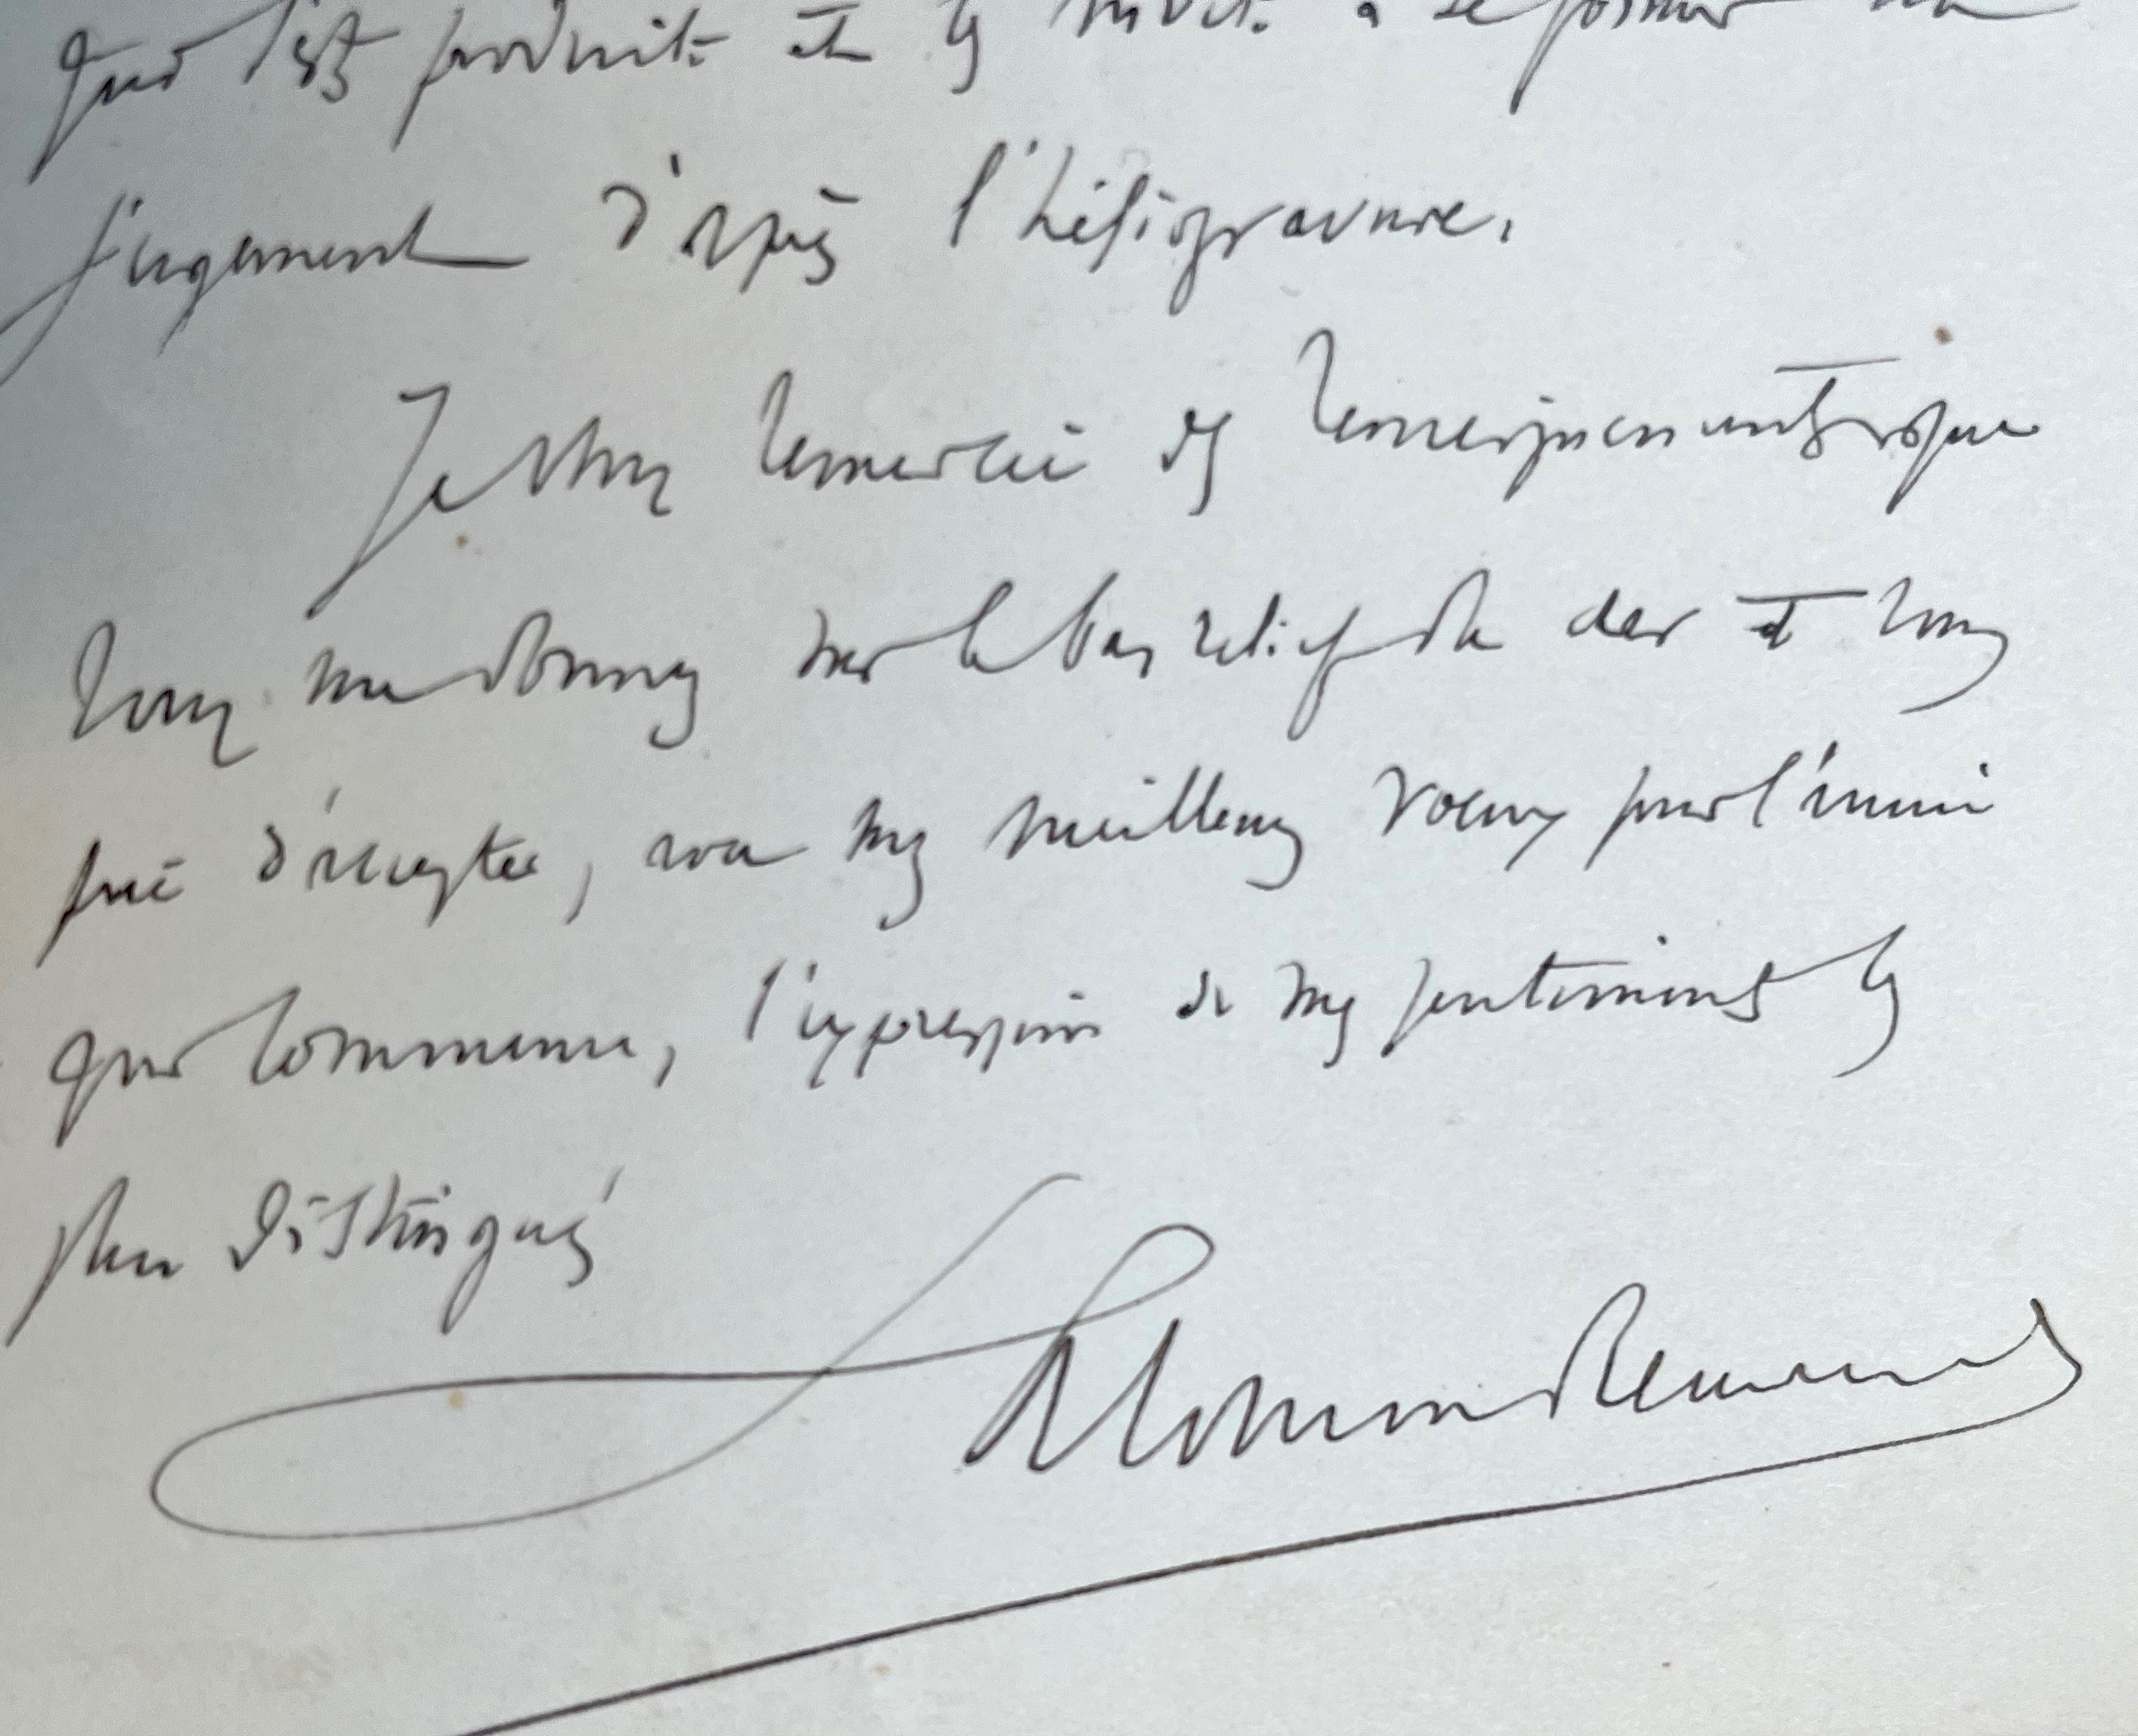 qui s'est produit et les invite à se former un
jugement d'après l'héliogravure.
Je vous remercie des renseignements que
vous me donnez sur le bas relief de der et vous
prie d'accepter, avec mes meilleurs voeux pour l'année
qui commence, l'expression de mes sentiments les
plus distingués